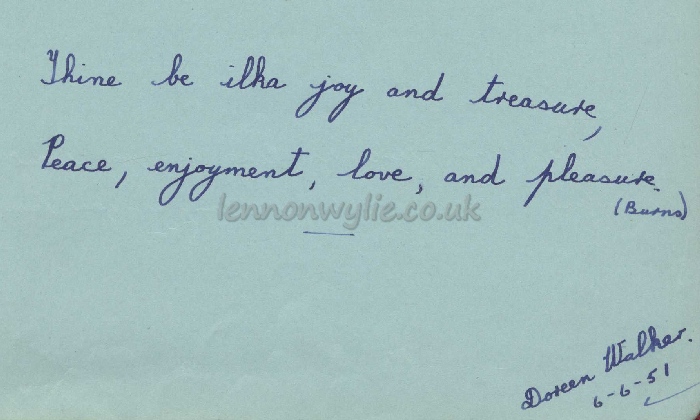 Thine be ilka joy and treasure,
Peace, enjoyment, love, and pleasure.
(Burns)
lennonwylie.co.uk
Doreen Walker.
6-6-51